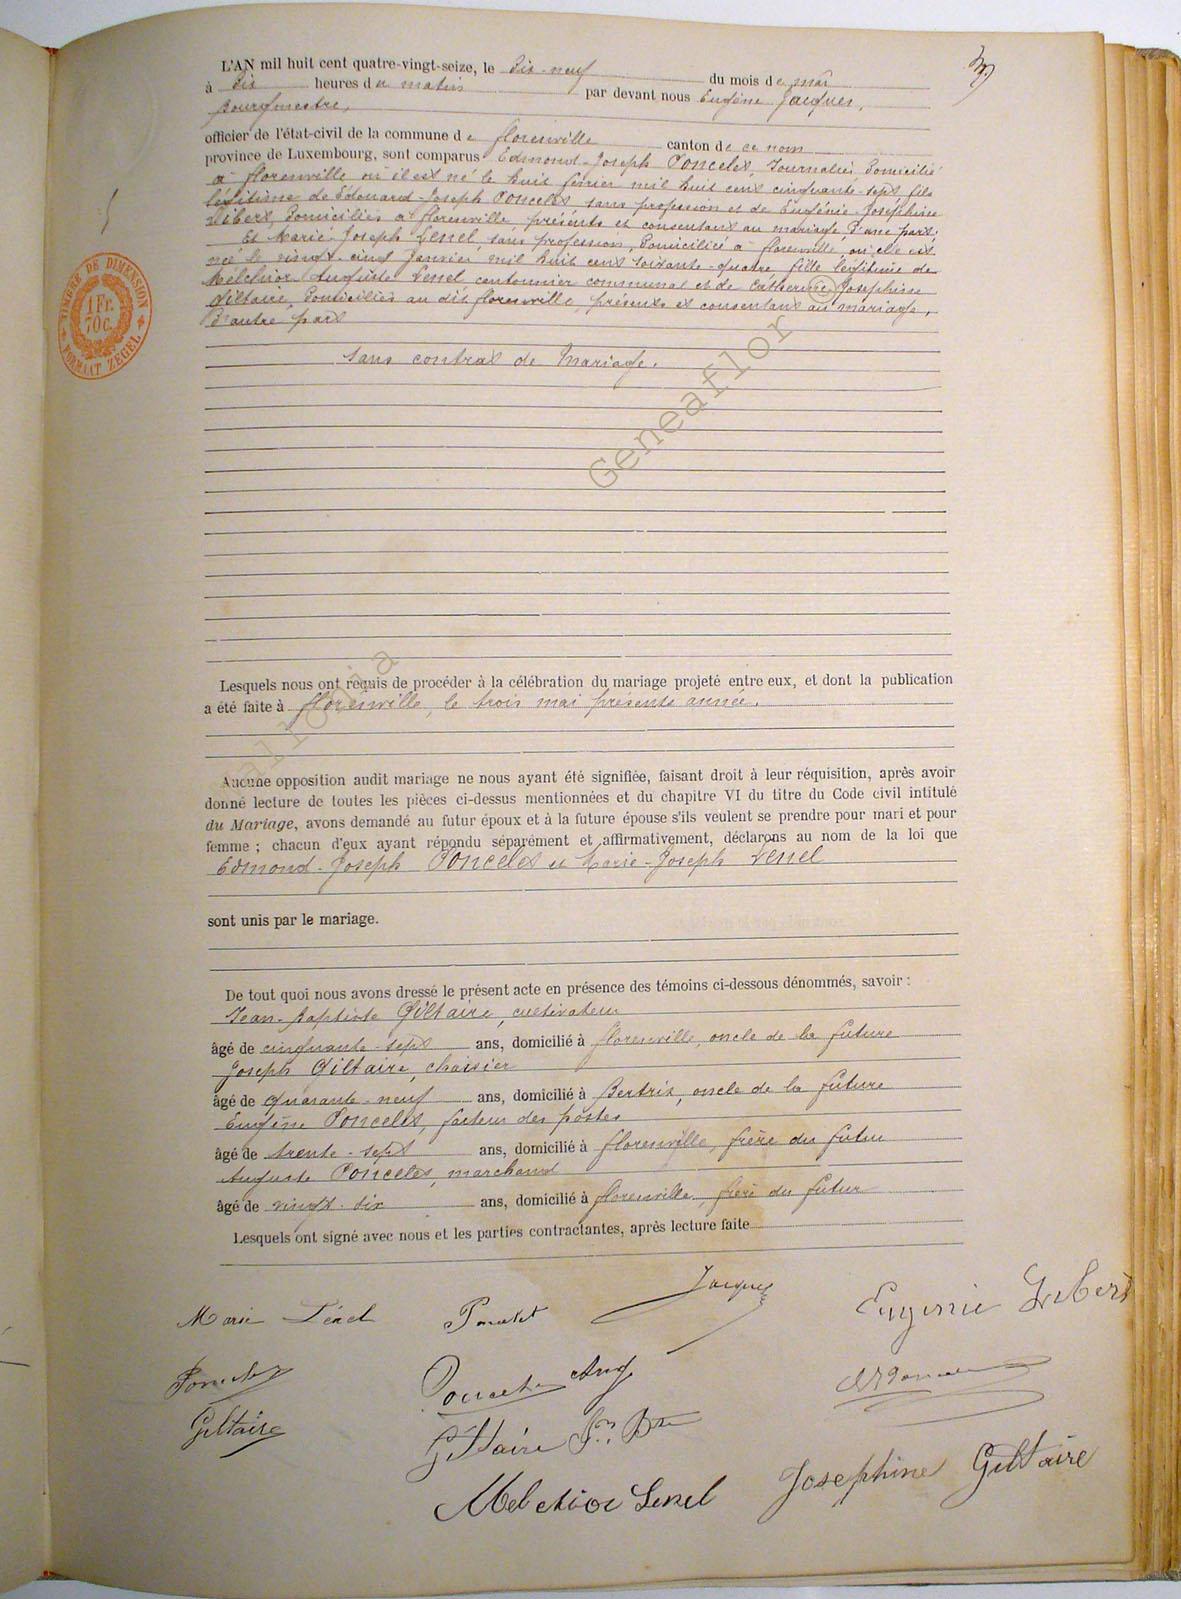 L'AN mil huit cent quatre-vingt-seize, le Dix-neuf du mois de mai
à Dix heures du matin par devant nous Eugène Jacques,
Bourgmestre,
officier de l'état-civil de la commune de florenville canton de ce nom
province de Luxembourg, sont comparus Edmond-Joseph Poncelet, Journalier, Domicilié
à florenville où il est né le huit février mil huit cent cinquante-sept fils
légitime de Edouard-Joseph Poncelet sans profession et de Eugénie-Joséphine
Libert, Domiciliés à florenville, présents et consentant au mariage, D'une part.
Et Marie-Joseph Lenel, sans profession, Domiciliée à florenville, où elle est
née le vingt-cinq Janvier mil huit cent soixante-quatre, fille légitime de
Melchior Auguste Lenel cantonnier communal et de Catherine Josephine
Giltaire, Domiciliés au dit florenville, présents et consentant au mariage,
D'autre part
Sans contrat de Mariage.
Lesquels nous ont requis de procéder à la célébration du mariage projeté entre eux, et dont la publication
a été faite à florenville, le trois mai présente année.
Aucune opposition audit mariage ne nous ayant été signifiée, faisant droit à leur réquisition, après avoir
donné lecture de toutes les pièces ci-dessus mentionnées et du chapitre VI du titre du Code civil intitulé
du Mariage, avons demandé au futur époux et à la future épouse s'ils veulent se prendre pour mari et pour
femme ; chacun d'eux ayant répondu séparément et affirmativement, déclarons au nom de la loi que
Edmond-Joseph Poncelet et Marie-Joseph Lenel
sont unis par le mariage.
De tout quoi nous avons dressé le présent acte en présence des témoins ci-dessous dénommés, savoir :
Jean-Baptiste Giltaire, cultivateur
âgé de cinquante-sept ans, domicilié à florenville, oncle de la future
Joseph Giltaire, chaisier
âgé de quarante-neuf ans, domicilié à Bertrix, oncle de la future
Eugène Poncelet, facteur des postes
âgé de trente-sept ans, domicilié à florenville, frère du futur
Auguste Poncelet, marchand
âgé de vingt-dix ans, domicilié à florenville, frère du futur
Lesquels ont signé avec nous et les parties contractantes, après lecture faite
TIMBRE DE DIMENSION
1 Fr.
70c.
FORMAAT ZEGEL
Geneaflor ©
Jacques
Marie Lénel Poncelet Eugenie Libert
Poncelet Poncelet Aug
Giltaire Giltaire Jn Bte
Melchior Lenel Josephine Giltaire